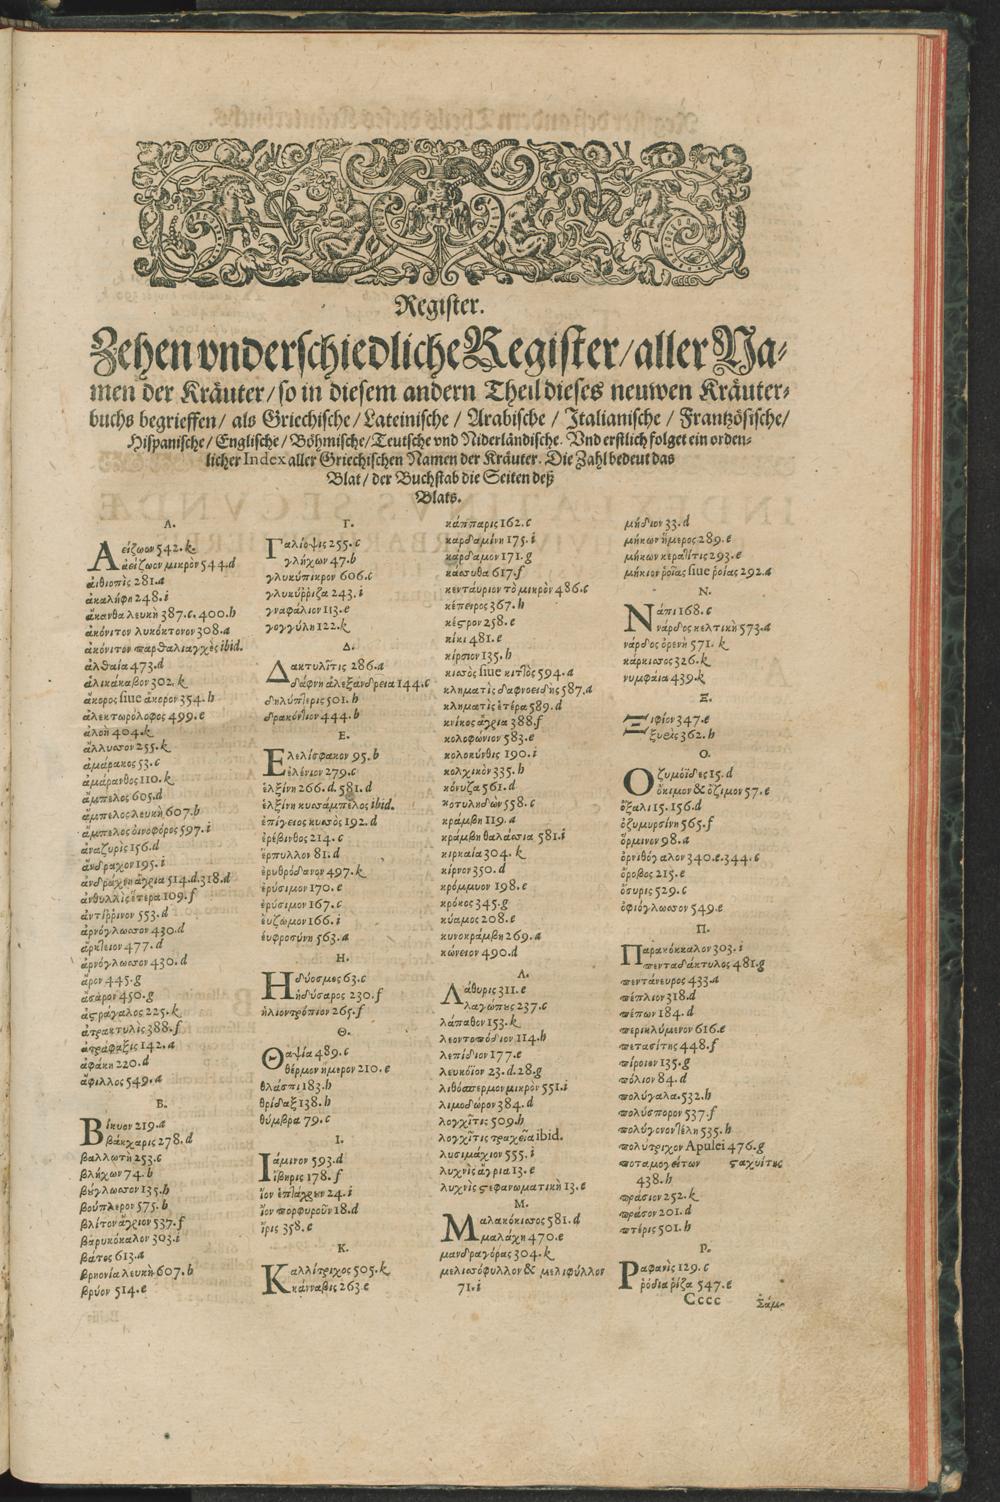 Register.
Zehen vnderschiedliche Register/aller Na-
men der Kräuter/so in diesem andern Theil dieses neuwen Kräuter-
buchs begrieffen/ als Griechische/Lateinische / Arabische / Italianische / Frantzösische/
Hispanische/ Englische/ Böhmische/Teutsche vnd Niderländische. Vnd erstlich folget ein orden-
licher Index aller Griechischen Namen der Kräuter. Die Zahl bedeut das
Blat/ der Buchstab die Seiten deß
Blats.
Α.
Ἀείζωον 542.k
ἀείζωον μικρὸν 544.d
αἰθιοπὶς 281.a
ἀκαλήφη 248.i
ἄκανθα λευκὴ 387.c.400.h
ἀκόνιτον λυκόκτονον 308.a
ἀκόνιτον παρδαλιαγχὲς ibid.
ἀλθαία 473.d
ἁλικάκαβον 302.k
ἄκορος siue ἄκορον 354.h
ἀλεκτωρόλοφος 499.e
ἀλόη 404.k
ἄλλυσσον 255.k
ἀμάρακος 53.c
ἀμάρανθος 110.k
ἄμπελος 605.d
ἄμπελος λευκὴ 607.b
ἄμπελος οἰνοφόρος 597.i
ἀναζυρὶς 156.d
ἄνδραχον 195.i
ἀνδράχνη ἄγρια 514.d.318.d
ἀνθυλλὶς ἕτερα 109.f
ἀντίῤῥινον 553.d
ἀρνόγλωσσον 430.d
ἄρκτειον 477.d
ἀρνόγλωσσον 430.d
ἄρον 445.g
ἄσαρον 450.g
ἀστράγαλος 225.k
ἀτρακτυλὶς 388.f
ἀτράφαξις 142.a
ἀφάκη 220.d
ἄφιλλος 549.a
Β.
Βίκυον 219.a
βάκχαρις 278.d
βαλλωτὴ 253.c
βλήχων 74.b
βύγλωσσον 135.h
βούπλερον 575.b
βλίτον ἄγριον 537.f
βαρυκόκαλον 303.i
βάτος 613.a
βρηονία λευκὴ 607.b
βρύον 514.e
Γ.
Γαλίοψις 255.c
γλήχων 47.b
γλυκύπικρον 606.c
γλυκύῤῥιζα 243.i
γναφάλιον 113.e
γογγύλη 122.k
Δ.
Δακτυλῖτις 286.a
δάφνη ἀλεξάνδρεια 144.c
δηλύπτερις 501.h
δρακόντιον 444.b
Ε.
Ἐλελίσφακον 95.b
ἑλένιον 279.c
ἑλξίνη 266.d. 581.d
ἑλξίνη κισσάμπελος ibid.
ἐπίγειος κισσὸς 192.d
ἐρέβινθος 214.c
ἕρπυλλον 81.d
ἐρυθρόδανον 497.k
ἐρύσιμον 170.e
ἐρύσιμον 167.c
εὔζωμον 166.i
εὐφροσύνη 563.a
Η.
Ἡδύοσμος 63.c
ἡδύσαρος 230.f
ἡλιοντρόπιον 265.f
Θ.
Θαψία 489.c
θέρμον ἥμερον 210.e
θλάσπι 183.h
θρίδαξ 138.h
θύμβρα 79.c
Ι.
Ἰάμινον 593.d
ἴβηρις 178.f
ἴον πορφυροῦν 18.d
ἴρις 358.e
Κ.
Καλλίτριχος 505.k
κάνναβις 263.e
κάππαρις 162.c
καρδαμίνη 175.i
κάρδαμον 171.g
κάσσυθα 617.f
κενταύριον τὸ μικρὸν 486.c
κέπειρος 367.h
κέστρον 258.e
κίκι 481.e
κίρσιον 135.h
κισσὸς siue κιττὸς 594.a
κληματὶς δαφνοειδὴς 587.a
κληματὶς ἑτέρα 589.d
κνίκος ἄγρια 388.f
κολοφώνιον 583.e
κολοκύνθις 190.i
κολχικὸν 335.h
κόνυζα 561.d
κοτυληδὼν 558.c
κράμβη 119.a
κράμβη θαλάσσια 581.i
κιρκαία 304.k
κίρνον 350.d
κρόμμυον 198.e
κρόκος 345.g
κύαμος 208.e
κυνοκράμβη 269.a
κώνειον 490.d
Λ.
Λάθυρις 311.e
λαγώπυς 237.c
λάπαθον 153.k
λεοντοπόδιον 114.h
λεπίδιον 177.e
λευκόϊον 23.d.28.g
λιθόσπερμον μικρὸν 551.i
λιμοδῶρον 384.d
λογχῖτις 509.h
λογχῖτις τραχεῖα ibid.
λυσιμάχιον 555.i
λυχνὶς ἄγρια 13.e
λυχνὶς στεφανωματικὴ 13.e
Μ.
Μαλακόκισσος 581.d
μαλάχη 470.e
μανδραγόρας 304.k
μελισσόφυλλον & μελιφύλλον
71.i
μήδιον 33.d
μήκων ἥμερος 289.e
μήκων κερατίτις 293.e
μήκιον ῥοῖας siue ῥοίας 292.a
Ν.
Νάπι 168.c
νάρδος κελτικὴ 573.a
νάρδος ὀρενὴ 571.k
νάρκισσος 326.k
νυμφαία 439.k
Ξ.
Ξιφίον 347.e
ξυρὶς 362.h
Ο.
Ὀζυμοΐδες 15.d
ὄκιμον & ὄζιμον 57.e
ὄξαλις 15.156.d
ὀξυμυρσίνη 565.f
ὄρμινον 98.a
ὀρνιθόγαλον 340.e.344.c
ὄροβος 215.e
ὄσυρις 529.c
ὀφιόγλωσσον 549.e
Π.
Παρακόκκαλον 303.i
πενταδάκτυλος 481.g
πεντάνευρος 433.a
πέπλιον 318.d
πέπων 184.d
περικλύμενον 616.e
πετασίτης 448.f
πίροιον 135.g
πόλιον 84.d
πολύγαλα 532.h
πολύσπορον 537.f
πολύγονον θῆλη 535.h
πολύτριχον Apulei 476.g
ποταμογείτων σταχυίτης
438.h
πράσιον 252.k
πράσον 201.d
πτέρις 501.h
Ρ.
Ῥαφανὶς 129.c
ῥόδια ῥίζα 547.e
Cccc Σάμ-